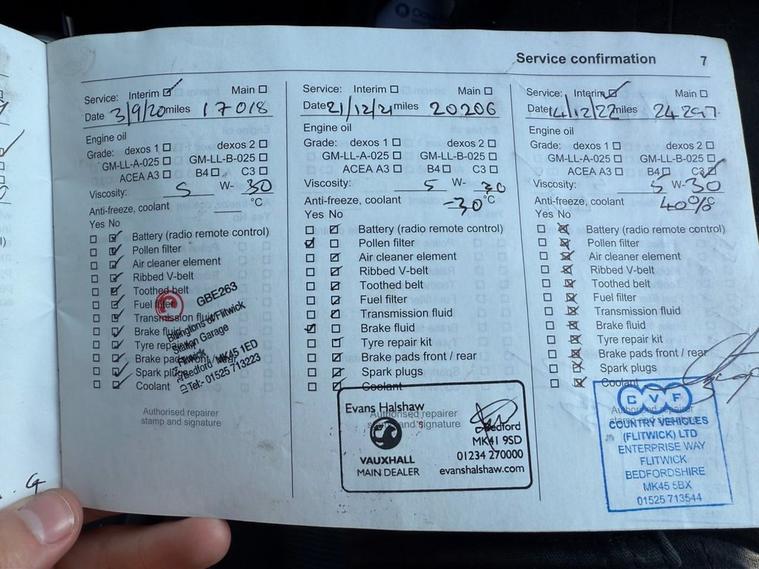 Service confirmation 7
Service: Interim Main
Date 3/9/20 miles 17018
Engine oil
Grade: dexos 1 dexos 2
GM-LL-A-025 GM-LL-B-025
ACEA A3 B4 C3
Viscosity: 5 W- 30
Anti-freeze, coolant °C
Yes No
Battery (radio remote control)
Pollen filter
Air cleaner element
Ribbed V-belt
Toothed belt
Fuel filter
Transmission fluid
Brake fluid
Tyre repair kit
Brake pads front / rear
Spark plugs
Coolant
GBE263
Billingtons of Flitwick
Station Garage
Flitwick
Bedford MK45 1ED
Tel:- 01525 713223
Authorised repairer
stamp and signature
Service: Interim Main
Date 21/12/21 miles 20206
Engine oil
Grade: dexos 1 dexos 2
GM-LL-A-025 GM-LL-B-025
ACEA A3 B4 C3
Viscosity: 5 W- 30
Anti-freeze, coolant -30 °C
Yes No
Battery (radio remote control)
Pollen filter
Air cleaner element
Ribbed V-belt
Toothed belt
Fuel filter
Transmission fluid
Brake fluid
Tyre repair kit
Brake pads front / rear
Spark plugs
Coolant
Authorised repairer
stamp and signature
Evans Halshaw
VAUXHALL
MAIN DEALER
Bedford
MK41 9SD
01234 270000
evanshalshaw.com
Service: Interim Main
Date 14/12/22 miles 24297
Engine oil
Grade: dexos 1 dexos 2
GM-LL-A-025 GM-LL-B-025
ACEA A3 B4 C3
Viscosity: 5 W- 30
Anti-freeze, coolant 40%
Yes No
Battery (radio remote control)
Pollen filter
Air cleaner element
Ribbed V-belt
Toothed belt
Fuel filter
Transmission fluid
Brake fluid
Tyre repair kit
Brake pads front / rear
Spark plugs
Coolant
CVF
COUNTRY VEHICLES
(FLITWICK) LTD
ENTERPRISE WAY
FLITWICK
BEDFORDSHIRE
MK45 5BX
01525 713544